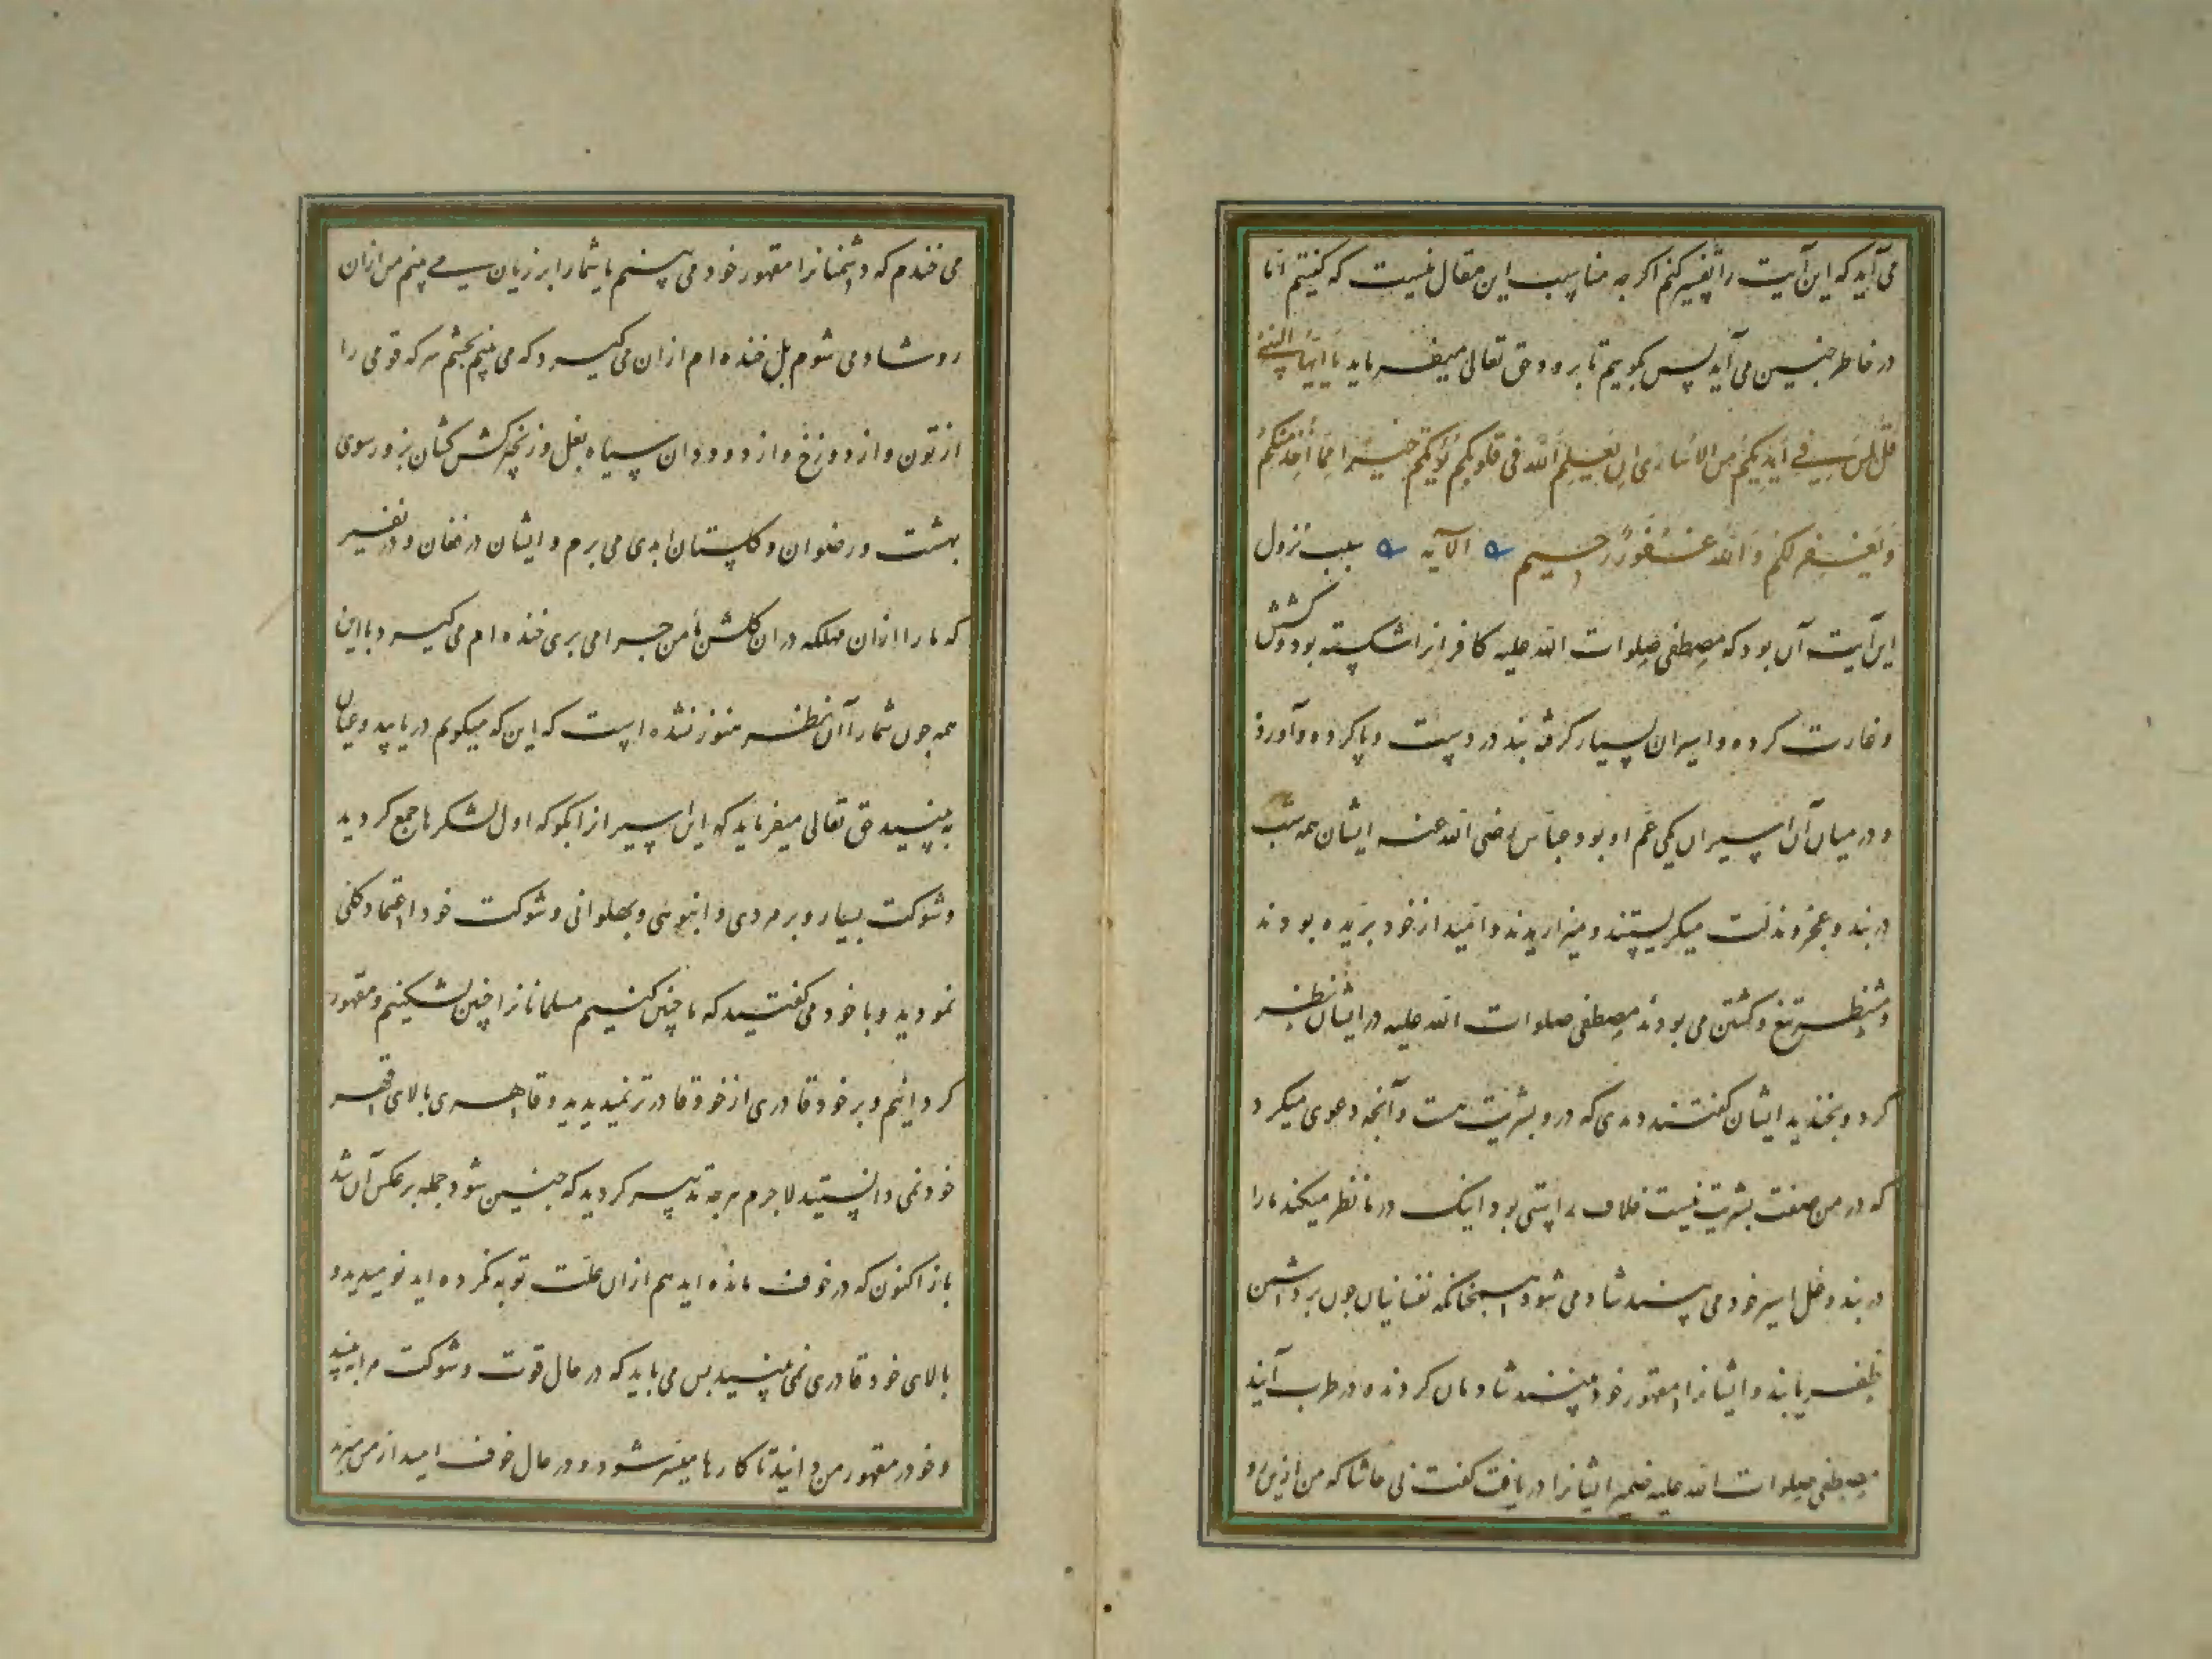 می آید که این آیت را تفسیر کنم اگرچه مناسب این مقال نیست که گفتم اما
در خاطر چنین می آید پس بگویم تا برود حق تعالی میفرماید یا ایها النبی
قل لمن فی ایدیکم من الاساری ان یعلم الله فی قلوبکم خیرا یؤتکم خیرا مما اخذ منکم
و یغفر لکم و الله غفور رحیم الآیه سبب نزول
این آیت آن بود که مصطفی صلوات الله علیه کافرانرا شکسته بود و کشش
و غارت کرده و اسیران بسیار گرفته بند در دست و پا کرده و آورد
و در میان آن اسیران یکی عم او بود عباس رضی الله عنه ایشان همه شب
در بند و عجز و مذلت میگریستند و میزاریدند و امید از خود بریده بودند
و منتظر تیغ و کشتن می بودند مصطفی صلوات الله علیه در ایشان نظر
کرد و بخندید ایشان گفتند دیدی که در و بشریت هست و آنچه دعوی میکرد
که در من صفت بشریت نیست خلاف راستی بود اینک در ما نظر میکند ما را
در بند و غل اسیر خود می بیند شاد می شود همچنانکه نفسانیان چون بر دشمن
ظفر یابند و ایشانرا مقهور خود بینند شادمان گردند و در طرب آیند
مصطفی صلوات الله علیه ضمیر ایشانرا دریافت گفت نی حاشا که من ازین رو
می خندم که دشمنانرا مقهور خود می بینم یا شمارا بر زیان می بینم من ازان
رو شاد می شوم بل خنده ام ازان می گیرد که می بینم بچشم سر که قومی را
از تون و از دوزخ و از دوددان سیاه بغل و زنجیر کشکشان بزور سوی
بهشت و رضوان و گلستان ابدی می برم و ایشان در فغان و در نفیر
که ما را ازان مهلکه در آن گلشن مامن چرا می بری خنده ام می گیرد با این
همه چون شمارا آن نظر هنوز نشده است که این که میگویم دریابید و عیان
به بینید حق تعالی میفرماید که اسیرانرا بگو که اول لشکرها جمع کردید
و شوکت بسیار و بر مردی و انبوهی و پهلوانی و شوکت خود اعتماد کلی
نمودید و با خود می گفتید که ما چنین کنیم مسلمانانرا چنین بشکنیم و مقهور
گردانیم و بر خود قادری از خود قادرتر نمیدیدید و قاهری بالای قهر
خود نمی دانستید لاجرم هرچه تدبیر کردید که چنین شود جمله بر عکس آن شد
باز اکنون که در خوف مانده اید هم ازان علت توبه نکرده اید نومیدید و
بالای خود قادری نمی بینید پس می باید که در حال قوت و شوکت مرا به بینید
و خود را مقهور من دانید تا کارها میسر شود و در حال خوف امید از من مبرید